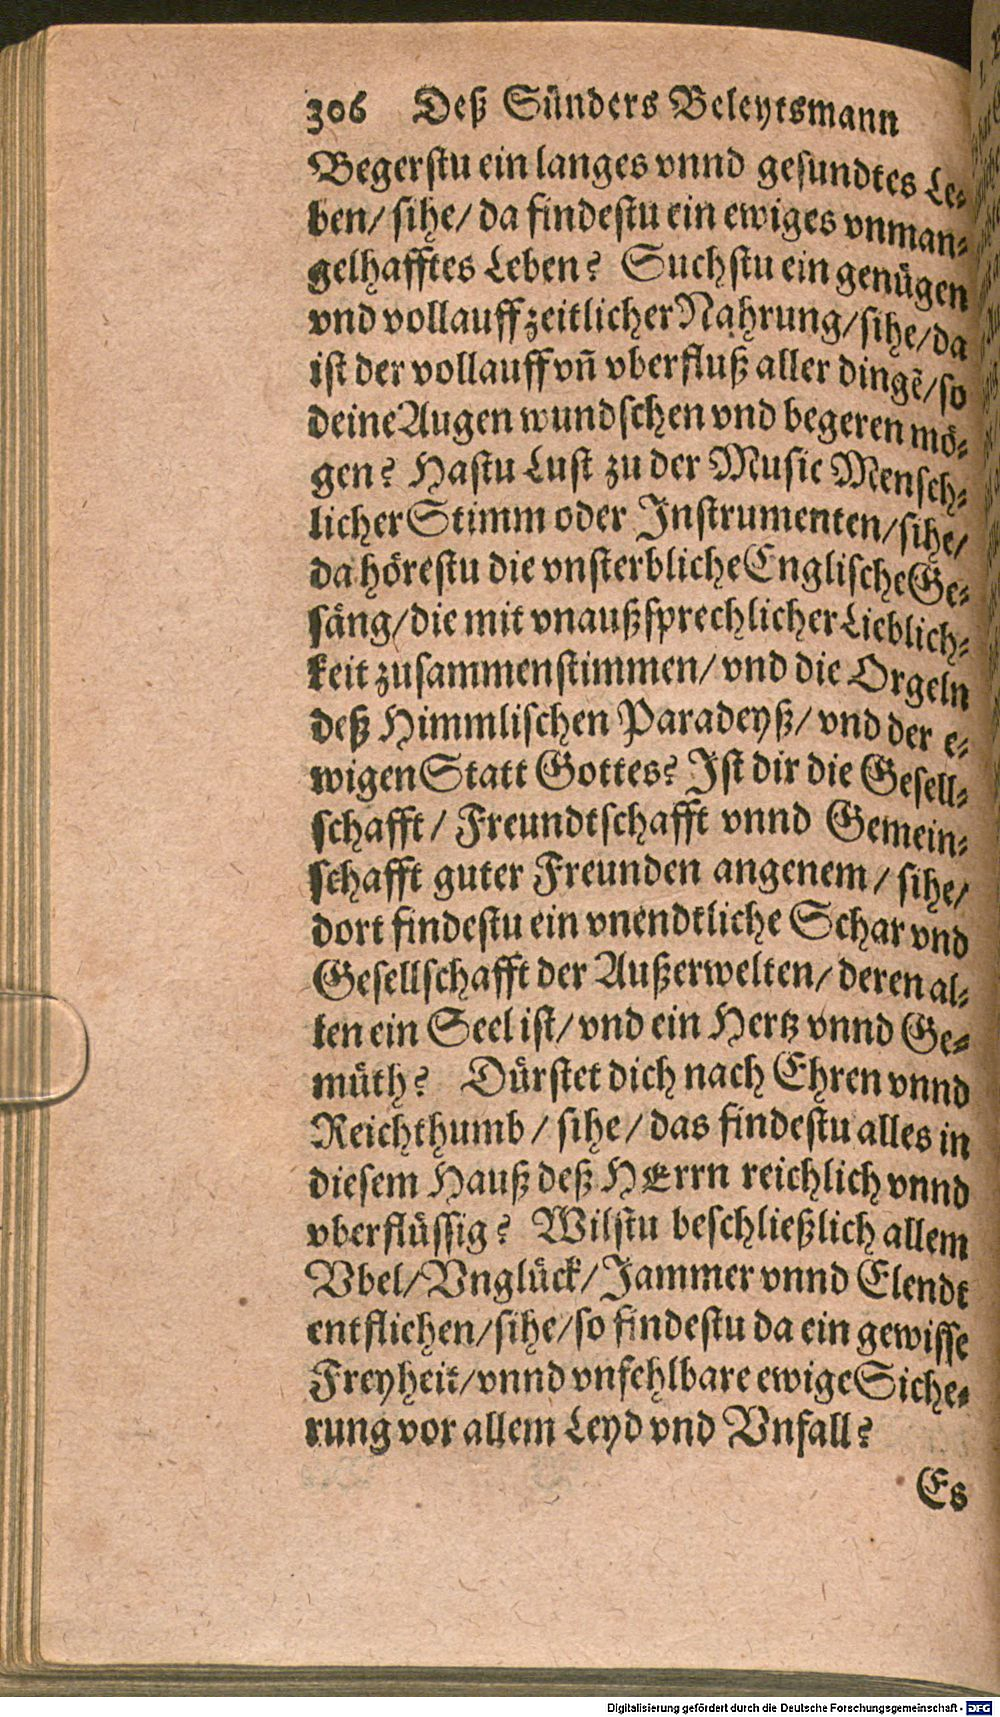 306 Deß Sünders Beleytsmann
Begerstu ein langes vnnd gesundtes Le-
ben/ sihe/ da findestu ein ewiges vnman-
gelhafftes Leben? Suchstu ein genügen
vnd vollauff zeitlicher Nahrung/ sihe/ da
ist der vollauff vñ vberfluß aller dingẽ/ so
deine Augen wundschen vnd begeren mö-
gen? Hastu Lust zu der Music Mensch-
licher Stimm oder Instrumenten/ sihe/
da hörestu die vnsterbliche Englische Ge-
säng/ die mit vnaußsprechlicher Lieblich-
keit zusammenstimmen/ vnd die Orgeln
deß Himmlischen Paradeyß/ vnd der e-
wigen Statt Gottes? Ist dir die Gesell-
schafft/ Freundtschafft vnnd Gemein-
schafft guter Freunden angenem/ sihe/
dort findestu ein vnendtliche Schar vnd
Gesellschafft der Außerwelten/ deren al-
len ein Seel ist/ vnd ein Hertz vnnd Ge-
müth? Dürstet dich nach Ehren vnnd
Reichthumb/ sihe/ das findestu alles in
diesem Hauß deß HErrn reichlich vnnd
vberflüssig? Wilstu beschließlich allem
Vbel/ Vnglück/ Jammer vnnd Elendt
entfliehen/ sihe/ so findestu da ein gewisse
Freyheit/ vnnd vnfehlbare ewige Siche-
rung vor allem Leyd vnd Vnfall?
Es
Digitalisierung gefördert durch die Deutsche Forschungsgemeinschaft - DFG